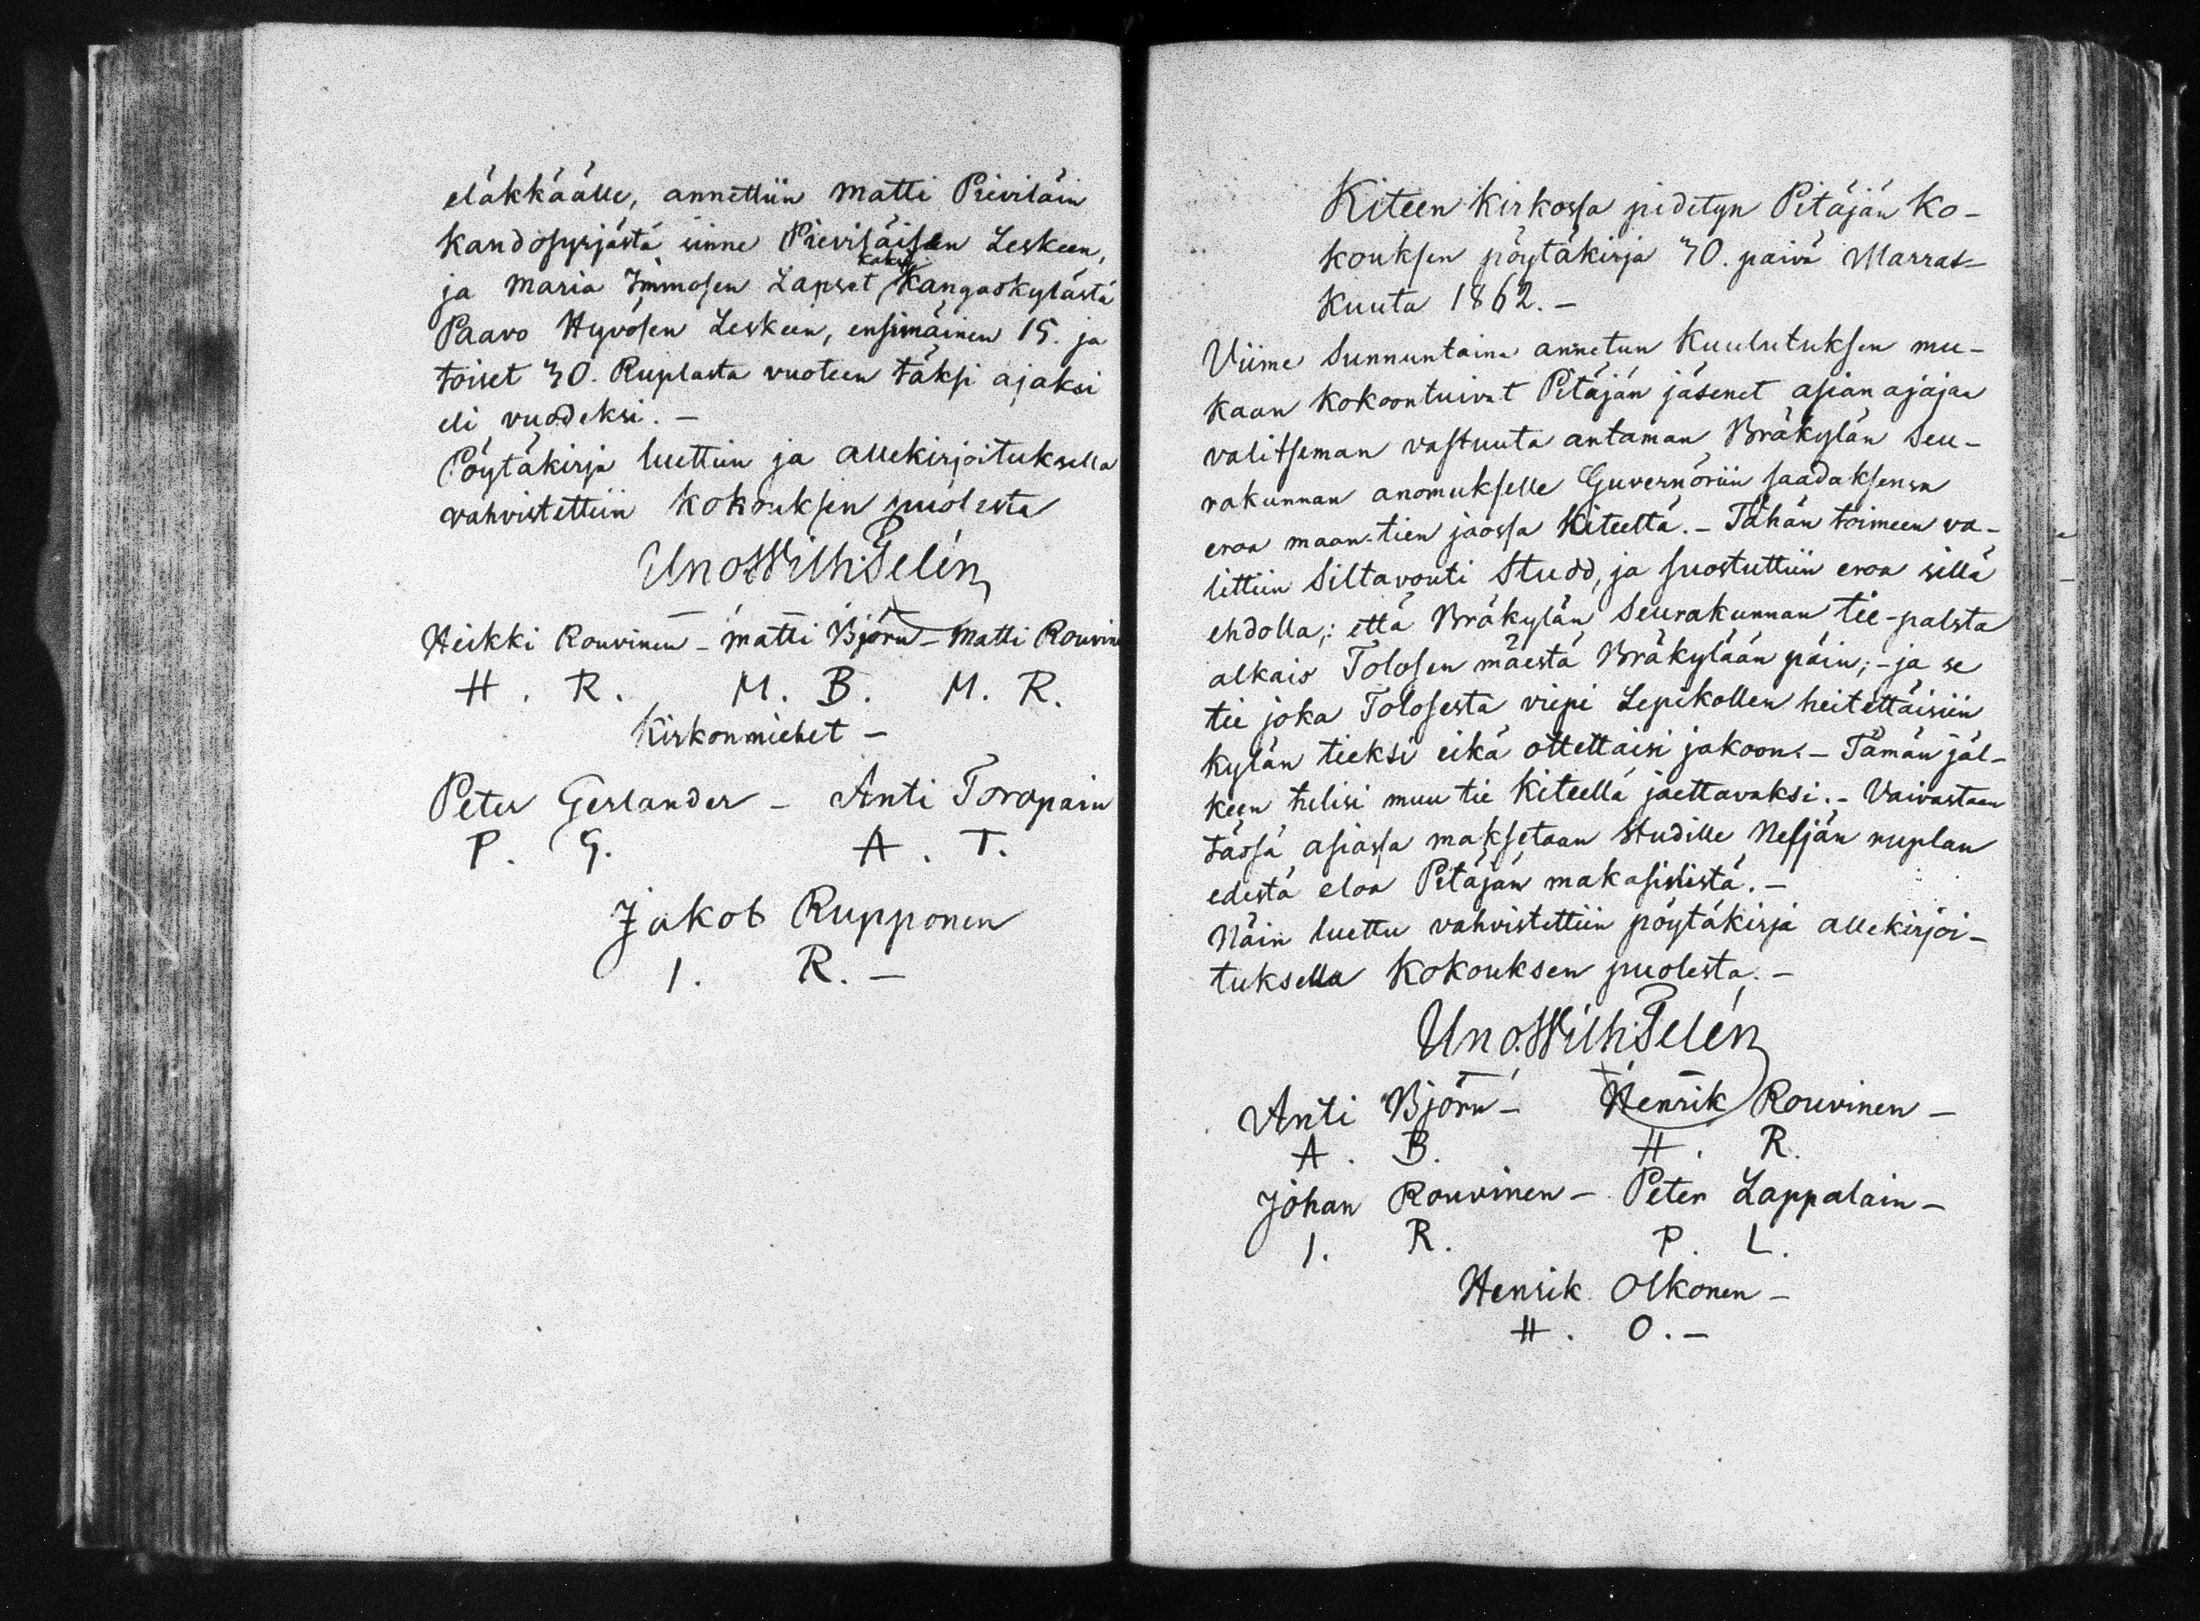 eläkkäälle, annettiin Matti Pieviläin
Kandosyrjästä sinne Pieviläisen Leskeen,
kaksi
ja Maria Immosen Lapset Kangaskylästä
Paavo Hyvösen Leskeen, ensimäinen 15. ja
toiset 30. Ruplasta vuoteen täksi ajaksi
eli vuodeksi. —
Pöytäkirja luettiin ja allekirjoituksella
vahvistettiin Kokouksen puolesta
Uno Wilh: Telén
Heikki Rouvinen — Matti Björn — Matti Rouvin
H. R. M. B. M. R.
Kirkonmiehet —
Peter Gerlander — Anti Toropain
P. G. A. T.
Jakob Rupponen
I. R. —
Kiteen Kirkossa pidetyn Pitäjän Ko-
kouksen pöytäkirja 30. päivä Marras-
kuuta 1862. —
Viime Sunnuntaina annetun Kuulutuksen mu-
kaan kokoontuivat Pitäjän jäsenet asian ajajaa
valitseman vastuuta antaman Bräkylän Seu-
rakunnan anomukselle Guvernöriin saadaksensa
eroa maan-tien jaossa Kiteeltä. — Tähän toimeen va-
littiin Siltavouti Studd, ja suostuttiin eroa sillä
ehdolla,: että Bräkylän Seurakunnan tie-palsta
alkais Tolosen mäestä Bräkylään päin; — ja se
tie joka Tolosesta viepi Lepikollen heitettäisiin
kylän tieksi eikä otettaisi jakoon. — Tämän jäl-
keen tulisi muu tie Kiteellä jaettavaksi. — Vaivastaan
tässä asiassa maksetaan Studille Neljän ruplan
edestä eloa Pitäjän makasinista. —
Näin luettu vahvistettiin pöytäkirja allekirjoi-
tuksella Kokouksen puolesta. —
Uno Wilh: Telén
Anti Björn — Henrik Rouvinen —
A. B. H. R.
Johan Rouvinen — Peter Lappalain —
I. R. P. L.
Henrik Olkonen —
H. O. —